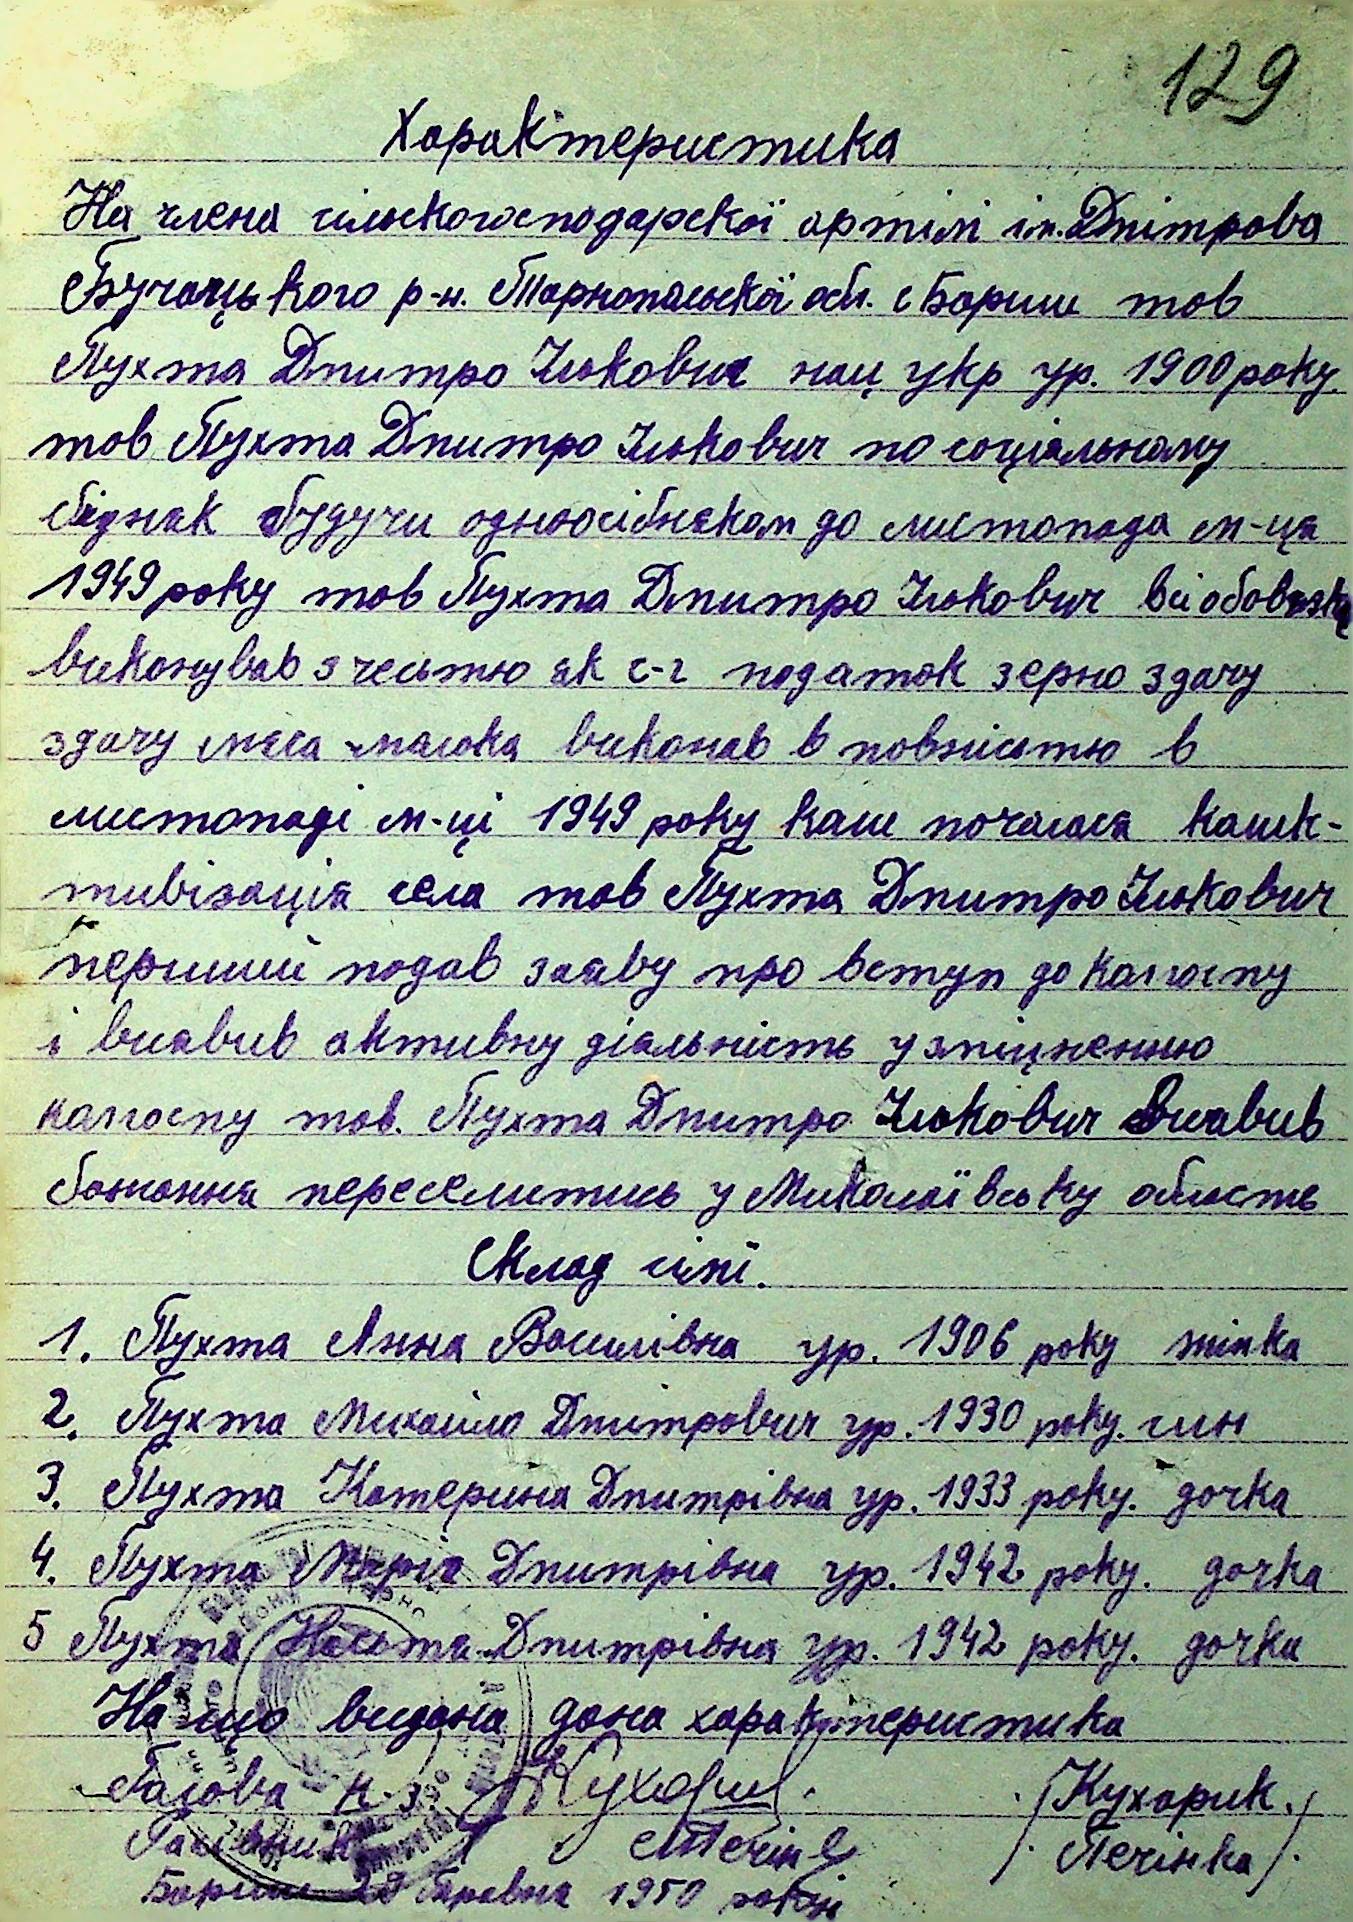 129
Характеристика
На члена сільскогосподарскої артілі ім. Дмітрова
Бучацького р-н. Тарнопольскої обл. с Бариш тов
Пухта Дмитро Ількович нац укр ур. 1900 року.
тов Пухта Дмитро Ількович по соціальному
бідняк будучи одноосібняком до листопада м-ця
1949 року тов Пухта Дмитро Ількович всі обовязки
виконував з честю як с-г податок зерно здачу
здачу мяса молока виконав в повністю в
листопаді м-ці 1949 року коли почалася колек-
тивізація села тов Пухта Дмитро Ількович
перший подав заяву про вступ до колгоспу
і виявив активну діяльність у зміцненню
колгоспу тов. Пухта Дмитро Ількович виявив
бажання переселитись у Миколаївську область
Склад сімї.
1. Пухта Анна Василівна ур. 1906 року жінка
2. Пухта Михайло Дмітрович ур. 1930 року. син
3. Пухта Катерина Дмитрівна ур. 1933 року. дочка
4. Пухта Марія Дмитрівна ур. 1942 року. дочка
5 Пухта Наста Дмитрівна ур. 1942 року. дочка
На що видана дана характеристика
Голова к-з. Кухарик /Кухарик/
Печінка /Печінка/
Бариш 1950 року